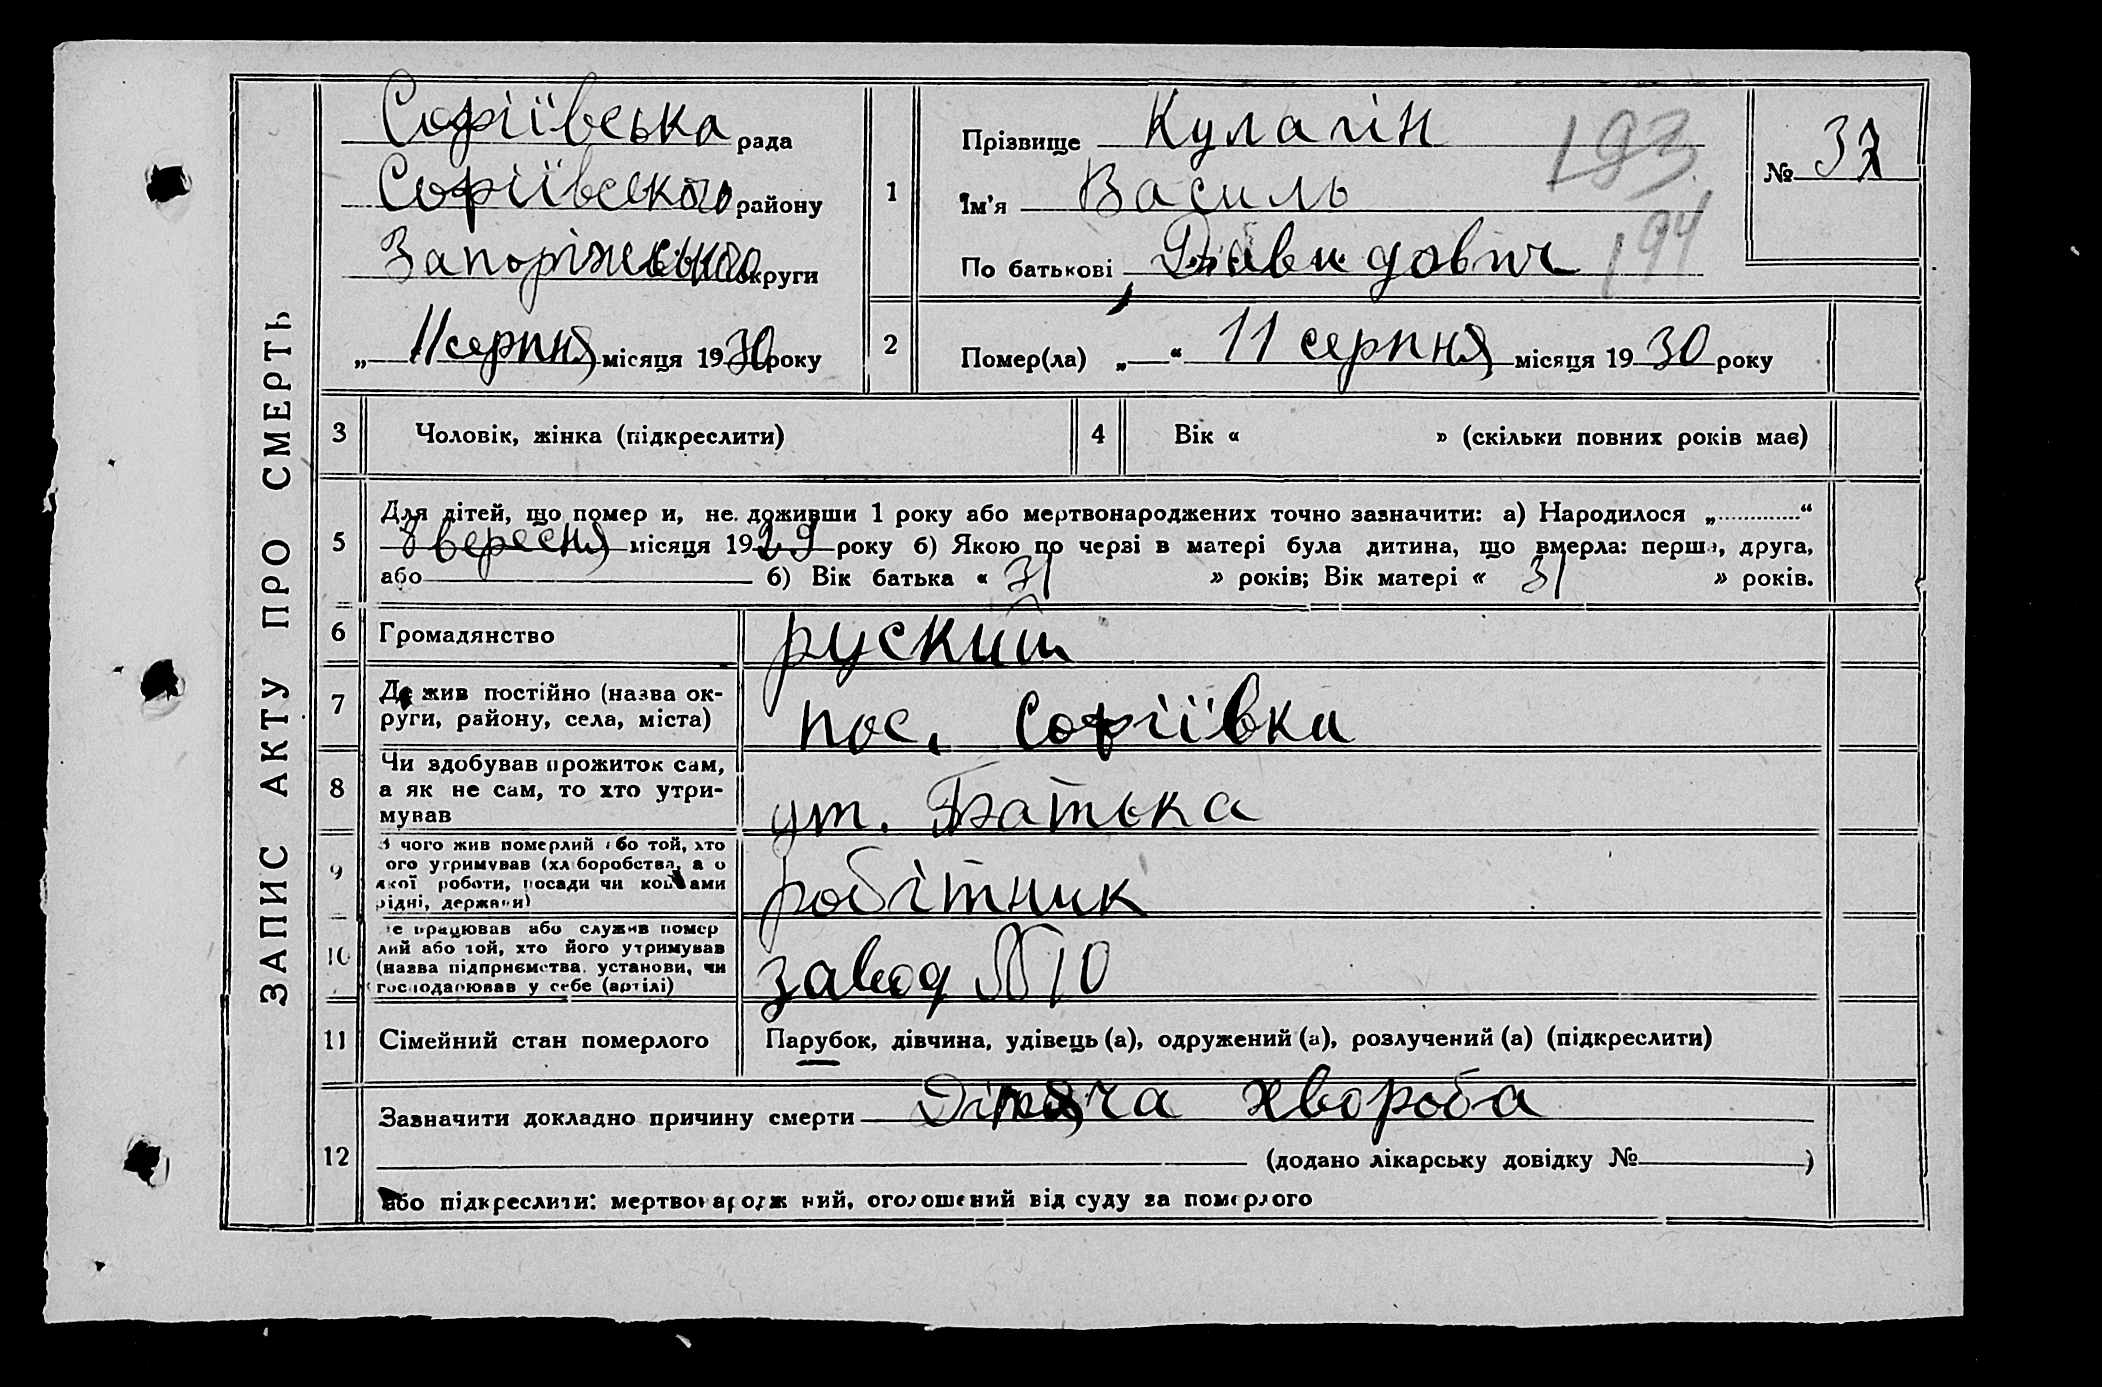 ЗАПИС АКТУ ПРО СМЕРТЬ
Софіївська рада
Софіївського району
Запоріжського округи
„ 11 серпня місяця 1930 року
1
Прізвище Кулагін
Ім'я Василь
По батькові Давидович
193
194
№ 32
2
Помер(ла) „ “ 11 серпня місяця 1930 року
3 Чоловік, жінка (підкреслити)
4 Вік « » (скільки повних років має)
5
Для дітей, що померли, не доживши 1 року або мертвонароджених точно зазначити: а) Народилося „ “
8 вересня місяця 1929 року б) Якою по черзі в матері була дитина, що вмерла: перша, друга,
або б) Вік батька « 31 » років; Вік матері « 31 » років.
6 Громадянство руский
7 Де жив постійно (назва ок-
руги, району, села, міста) пос. Софіївка
8 Чи здобував прожиток сам,
а як не сам, то хто утри-
мував ут. Батька
9 З чого жив померлий або той, хто
його утримував (хліборобства, або
якої роботи, посади чи коштами
рідні, держави) робітник
10 Де працював або служив помер
лий або той, хто його утримував
(назва підприємства, установи, чи
господарював у себе (артілі) завод №10
11 Сімейний стан померлого Парубок, дівчина, удівець (а), одружений (а), розлучений (а) (підкреслити)
12
Зазначити докладно причину смерти Дітяча хвороба
(додано лікарську довідку № )
або підкреслити: мертвонароджений, оголошений від суду за померлого